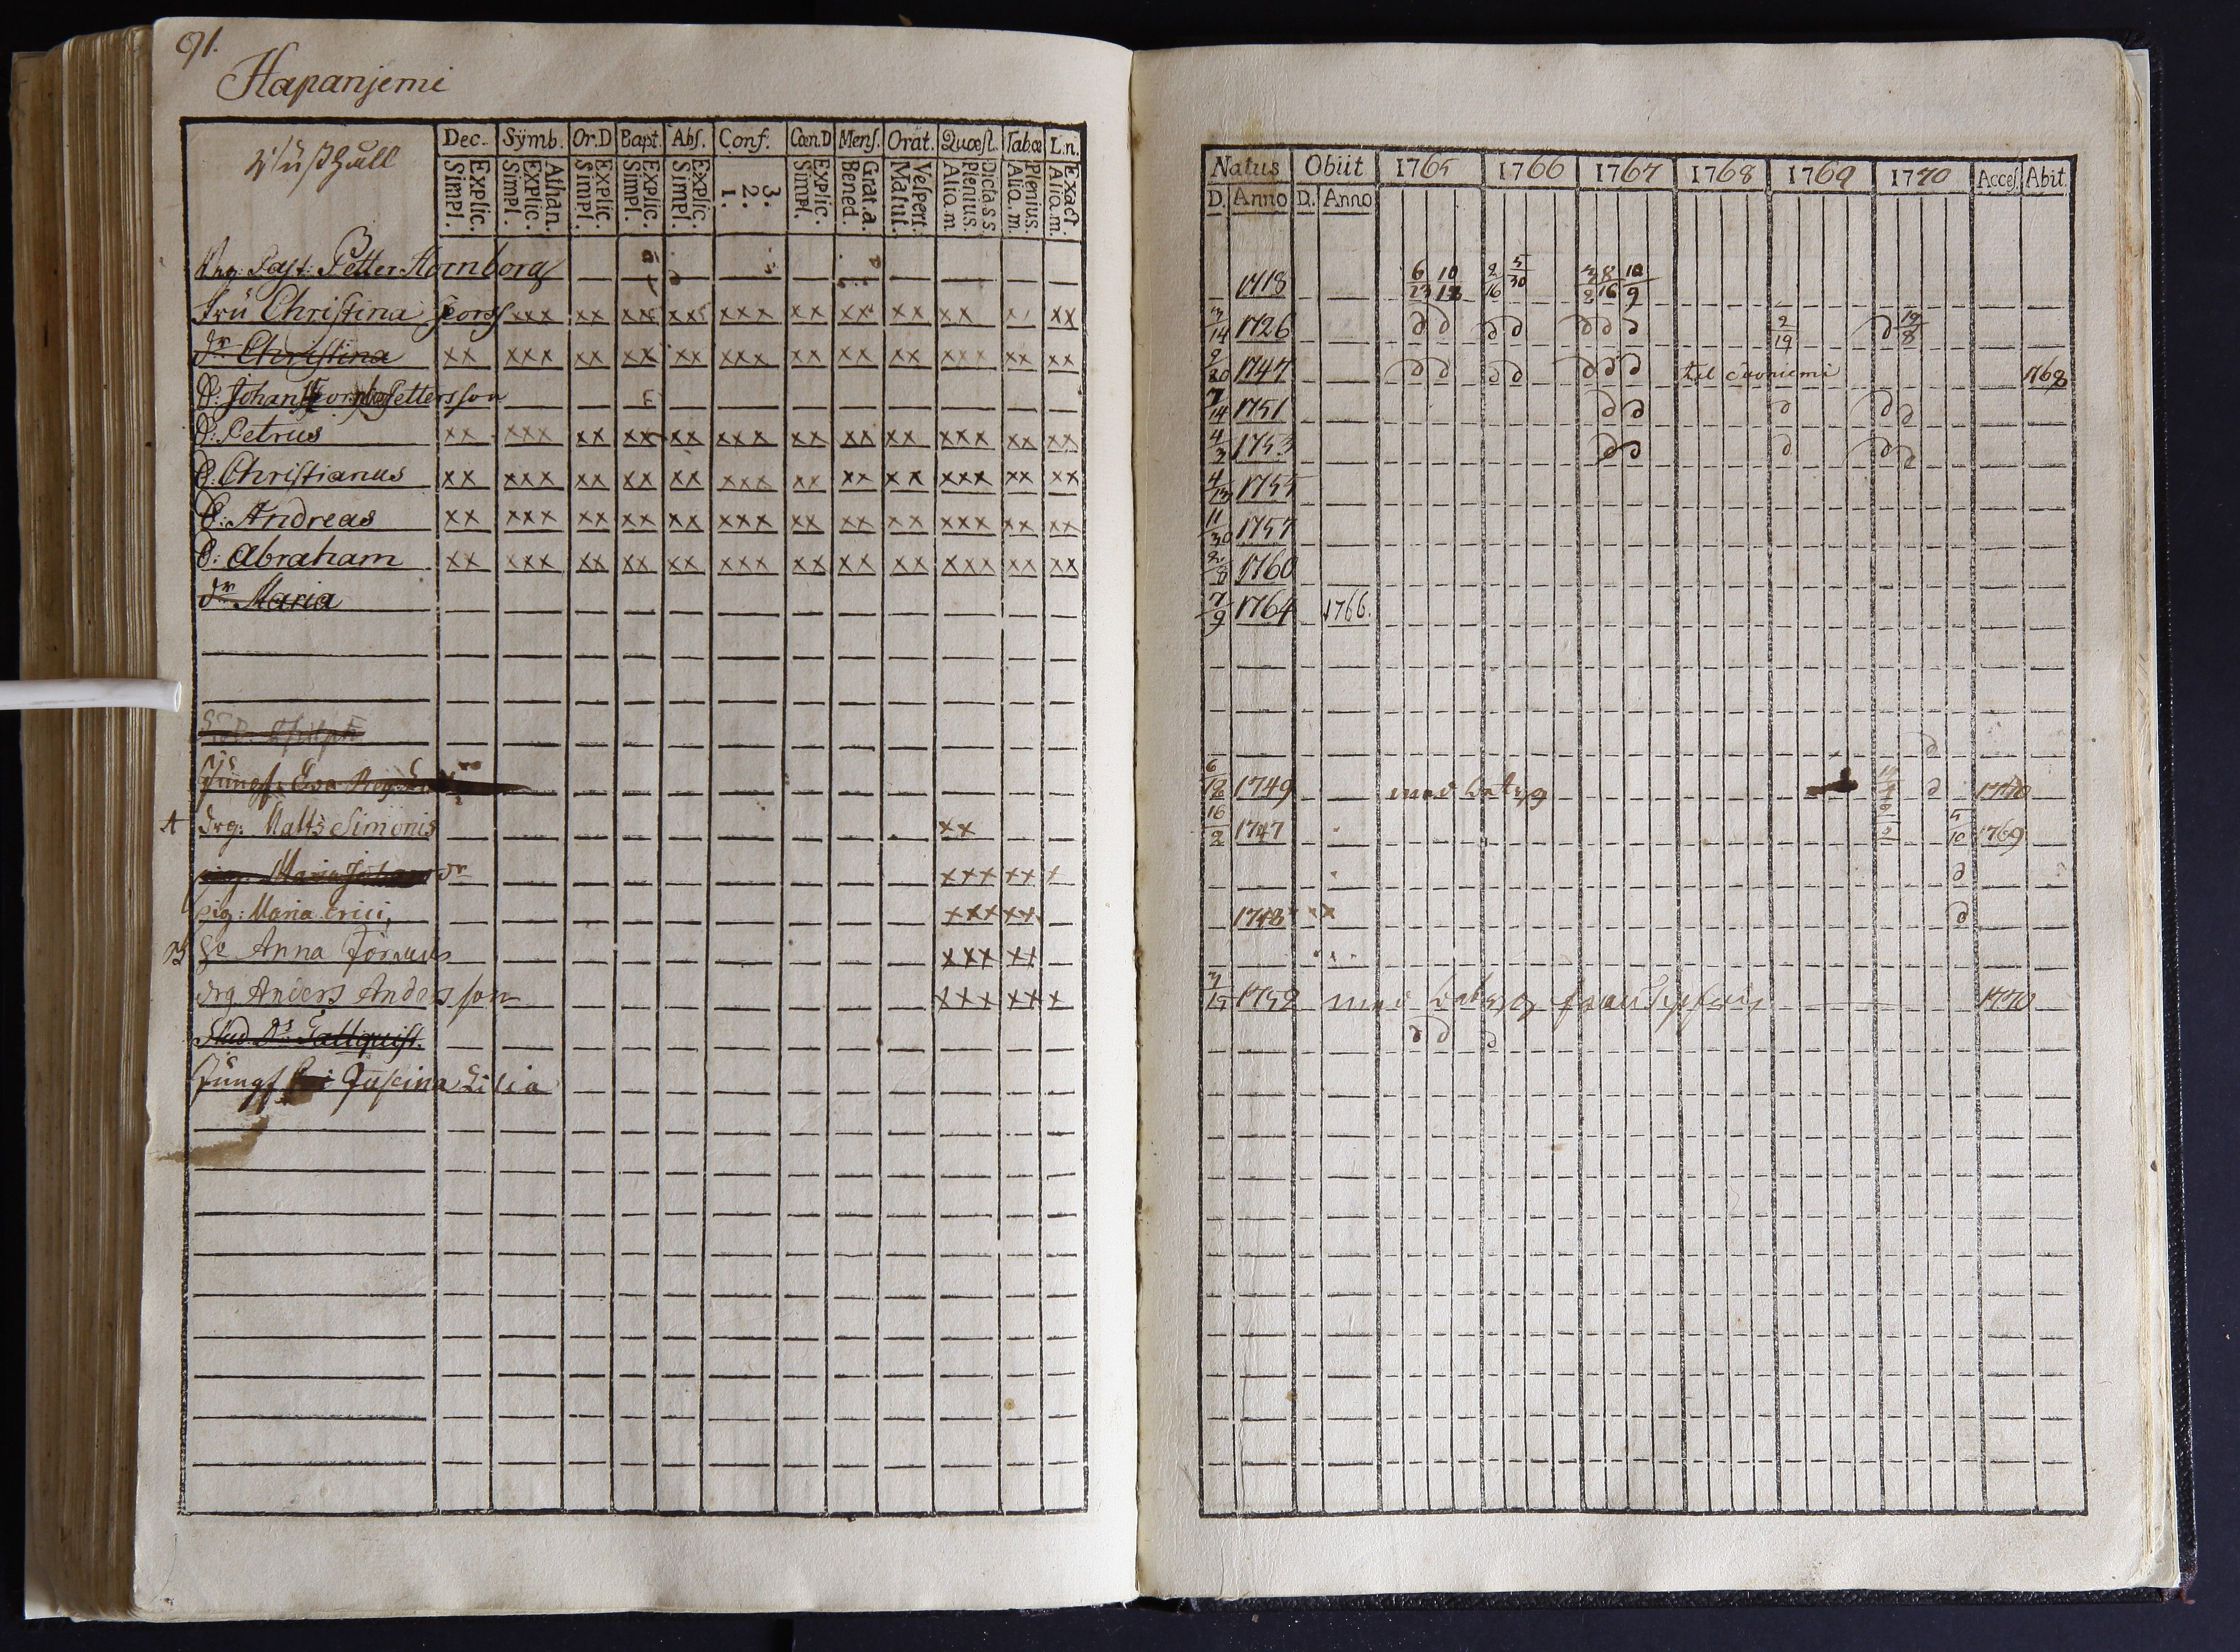 91.
Hapanjemi
Dec. Sÿmb. Or.D Bapt. Abs. Conf. Cœn.D Mens. Orat. Quæst. Tabæ L.n.
Simpl. Explic. Simpl. Explic. Athan. Simpl. Explic. Simpl. Explic. Simpl. Explic. 1. 2. 3. Simpl. Explic. Bened. Grat.a. Matut. Vespert. Alio.m. Plenius. Dicta s.s. Alio.m. Plenius. Alio.m. Exact.
Past: Petter Hornborg
Fru Christina Forss xxx xx xx xx xxx xx xx xx xx xx
dr Christina xx xxx xx xx xx xxx xx xx xx xxx xx xx
S: Johan Pettersson
S: Petrus xx xxx xx xx xx xxx xx xx xx xxx xx xx
S: Christianus xx xxx xx xx xx xxx xx xx xx xxx xx xx
S: Andreas xx xxx xx xx xx xxx xx xx xx xxx xx xx
S: Abraham xx xxx xx xx xx xxx xx xx xx xxx xx xx
dr Maria
Jungf: Eva
A drg: Matts Simonis xx
pig: Maria Johans dr xxx xx x
pig: Maria Erici xxx xx
Anna xxx xx
drg Anders Andersson xxx xx x
Stud. Tallquist.
Jungf
Natus Obiit 1765 1766 1767 1768 1769 1770 Acces. Abit.
D. Anno D. Anno
1718 6/23 10/18 2/16 5/30 3/2 8/16 10/9
3/14 1726 2/19 19/8
2/20 1747 til Suoniemi 1768
7/14 1751
4/3 1753
4/13 1755
11/30 1757
2/8 1760
7/9 1764 1766.
6/12 1749 med betyg 1770
16/2 1747 5/10 1769
1748
3/15 1752 med betyg 1770